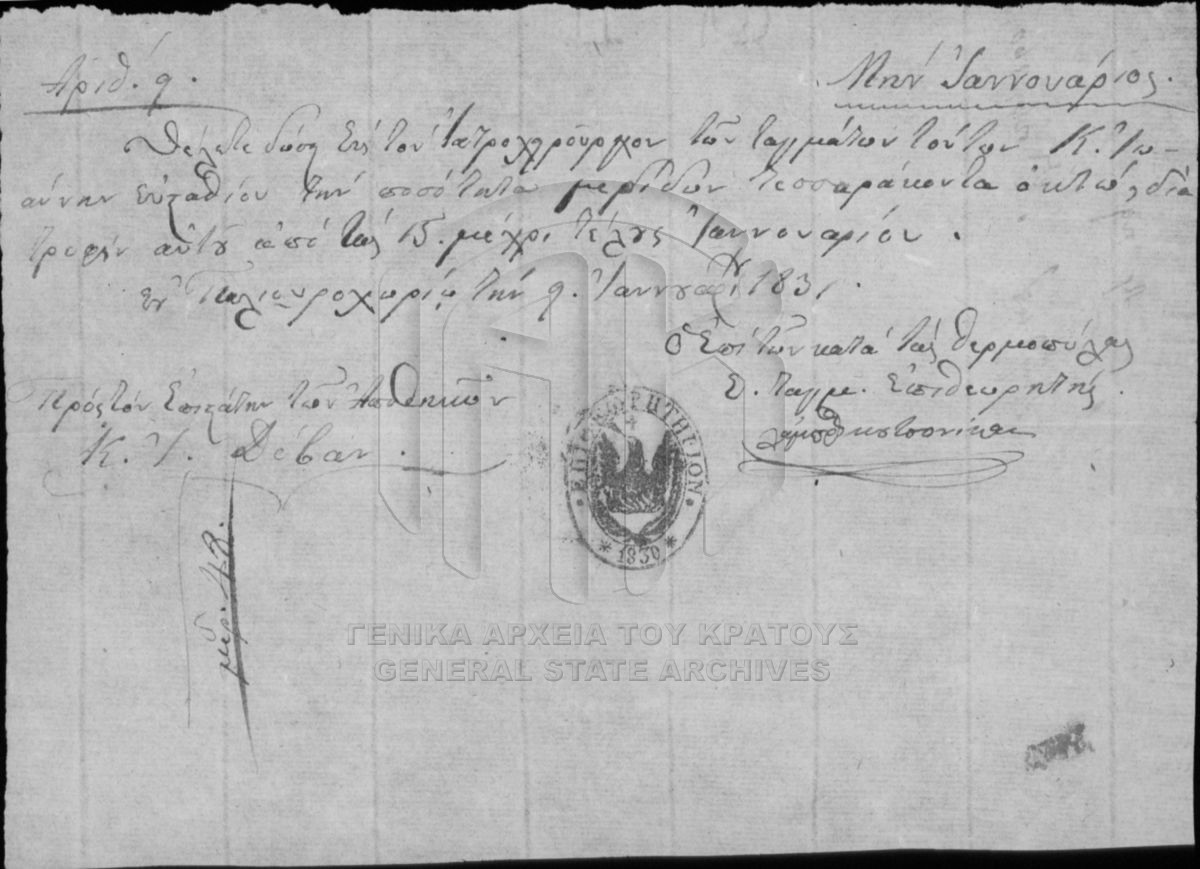 Ἀριθ. 9.
Μὴν Ἰαννουάριος.
Θέλετε δώση εἰς τὸν Ἰατροχηροῦργον τῶν ταγμάτων τούτων Κ. Ἰω-
άννην Εὐσταθίου τὴν ποσότητα μερίδων τεσσαράκοντα ὀκτὼ, διὰ
τροφήν αὐτοῦ ἀπὸ τὰς 15. μέχρι τέλους Ἰαννουαρίου.
ἐν Παλιουροχωρίῳ τὴν 9. Ἰαννουαρίου 1831.
Ὁ Ἐπὶ τῶν κατὰ τὰς Θερμοπύλας
Σ. Ταγμ. Ἐπιθεωρητής.
Πρὸς τὸν Ἐπιστάτην τῶν Ἀποθηκῶν
Κ. Ἰ. Δέβαν.
μερ. 48.
ΕΠΙΘΕΩΡΗΤΗΡΙΟΝ
* 1830 *
ΓΕΝΙΚΑ ΑΡΧΕΙΑ ΤΟΥ ΚΡΑΤΟΥΣ
GENERAL STATE ARCHIVES